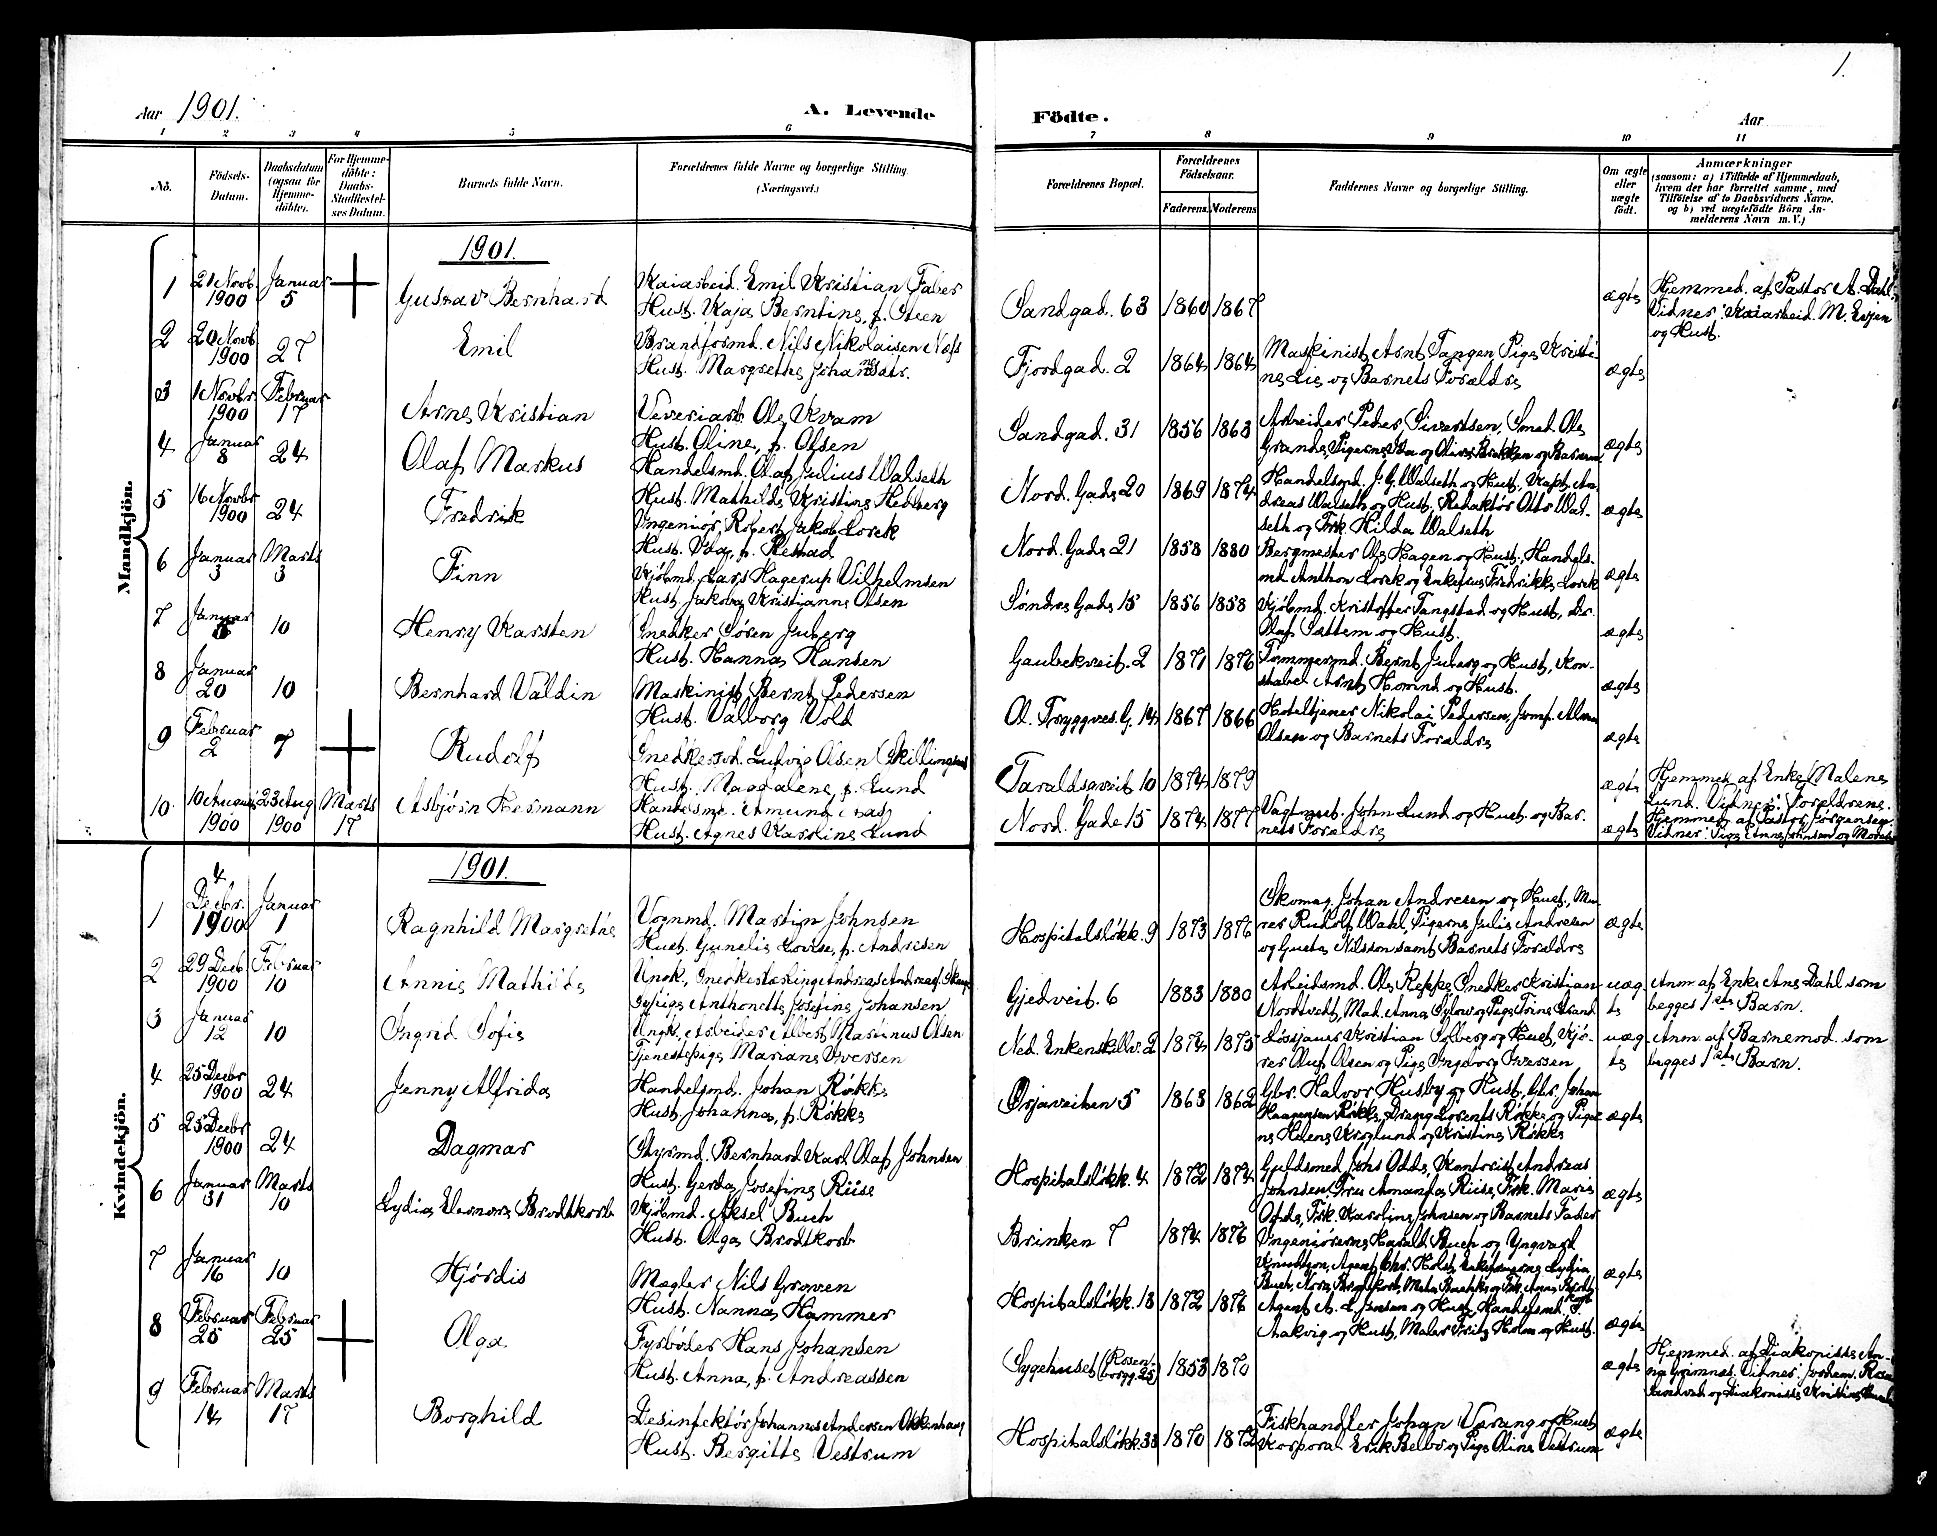 1.
Aar 1901.
A. Levende Födte.
Aar
1 2 3 4 5 6 7 8 9 10 11
No.
Födsels-
Datum.
Daabsdatum
(ogsaa for
Hjemme-
döbte).
For Hjemme-
döbte:
Daabs-
Stadfæstel-
ses Datum.
Barnets fulde Navn.
Forældrenes fulde Navne og borgerlige Stilling.
(Næringsvei.)
Forældrenes Bopæl.
Forældrenes
Födselsaar.
Faderens. Moderens.
Faddernes Navne og borgerlige Stilling.
Om ægte
eller
uægte
födt.
Anmærkninger
(saasom: a) i Tilfælde af Hjemmedaab,
hvem der har forrettet samme, med
Tilföielse af to Daabsvidners Navne,
og b) ved uægtefödte Börn An-
melderens Navn m. V.)
Mandkjön.
1901.
1 21 Novb. 1900 Januar 5 Gustav Bernhard
Kaiarbeid. Emil Kristian Faber
Hust. Kaja Berntine, f. Steen
Sandgad. 63 1860 1867 ægte
Hjemmed. af Pastor A. Dahl,
Vidner: Kaiarbeid. M. Esjen
og Hust.
2 20 Novb. 1900 27 Emil
Brandformd. Nils Nikolaisen Næss
Hust. Margrethe Johannesdtr.
Fjordgad. 2 1864 1864
Maskinist Arnt Tangen Pige Kristi-
ne Lie og Barnets Forældre
ægte
3 1 Novbr 1900 Februar 17 Arne Kristian
Væveriarb. Ole Kvam
Hust. Oline, f. Olsen
Sandgad. 31 1856 1863
Arbeider Peder Sivertsen, Smed Ole
Grande, Pigerne og Oline Brekken og Barnem.
ægte
4 Januar 8 24 Olaf Markus
Handelsmd. Olaf Julius Walseth
Hust. Mathilde Kristine Hedberg
Nord. Gade 20 1869 1874
Handelsmd. J. G. Walseth og Hust., Kapt. An-
dreas Walseth og Hust, Redaktør Otto Wal-
seth og Frk. Hilda Walseth
ægte
5 16 Novbr 1900 24 Fredrik
Ingeniör Robert Jakob Lorck
Hust. Vda, f. Restad
Nord. Gade 21 1858 1880
Bergmester Ole Hagen og Hust., Handels-
md. Anthon Lorck og Enkefru Fredrikke Lorck
ægte
6 Januar 3 Marts 3 Finn
Kjöbmd. Lars Hagerup Vilhelmsen
Hust. Jakobe Kristianne Olsen
Söndre Gade 15 1856 1858
Kjöbmd. Kristoffer Tangstad og Hust, Dr.
Olaf Sættem og Hust.
ægte
7 Januar 10 Henry Karsten
Snedker Sören Juberg
Hust. Hanna Hansen
Gaubekveit. 2 1871 1876
Tömmermd. Bernt Juberg og Hust, Kon-
stabel Arnt Homnd og Hust.
ægte
8 Januar 20 10 Bernhard Valdin
Maskinist Bernt Pedersen
Hust. Valborg Vold
Ol. Tryggves. G. 14 1867 1866
Hoteltjener Nikolai Pedersen, Jomf. Alma
Olsen og Barnets Forældre
ægte
9 Februar 2 7 Rudolf
Snedkersvd. Ludvig Olsen (Skillingsaas)
Hust. Magdalene, f. Lund
Taraldsgveit 10 1874 1879 ægte
Hjemmed. af Enke Malene
Lund. Vidner: Forældrene.
10 10 August 1900 23 Aug 1900 Marts 17 Asbjörn Hermann
Handelsmd. Amund Aas
Hust. Agnes Karoline Lund
Nord. Gade 15 1874 1877
Vagtmst. John Lund og Hust og Bar-
nets Forældre
ægte
Hjemmed. af Pastor Jörgensen.
Vidner: Pige Anne Johnsen og Moderen
Kvindekjön.
1901.
1 4 Decbr. 1900 Januar 1 Ragnhild Margrethe
Vognmd. Martin Johnsen
Hust. Gunelie Lovise, f. Andresen
Hospitalslökk. 9 1873 1876
Skomag. Johan Andresen og Hust, Mu-
rer Rudolf Wahl, Pigerne Julie Andresen
og Gusta Nilsson samt Barnets Forældre
ægte
2 29 Decb. 1900 Februar 10 Annie Mathilde
Ungk. Snedkerlærling Andreas Andreas
Sypige Anthonette Josefine Johansen
Gjedveit. 6 1883 1880
Arbeidsmd. Ole Reppe, Snedker Kristian
Nordtvedt, Mad. Anna Sylow og Pige Trine Strand
uæg
te
Anm. af Enke Ane Dahl som
begges 1ste Barn.
3 Januar 12 10 Ingrid Sofie
Ungk. Arbeider Albert Marinus Olsen
Tjenestepige Mariane Iversen
Ned. Enkenskillv. 2 1874 1875
Lössjauer Kristian Solberg og Hust, Kjö-
rer Oluf Olsen og Pige Ingeborg Iversen
uæg
te
Anm. af Barnemod. som
begges 1ste Barn.
4 25 Decbr 1900 24 Jenny Alfride
Handelsmd. Johan Røkke
Hust. Johanna, f. Røkke
Ørjaveiten 5 1863 1862
Gbr. Halvor Husby og Hust. Gbr. Johan
Haagensen Røkke, Dreng Lorents Røkke og Pige
ne Helene Kroglund og Kristine Røkke
ægte
5 25 Decbr 1900 24 Dagmar
Styrmd. Bernhard Karl Olaf Johnsen
Hust. Gerda Josefine Riise
Hospitalslökk. 4 1872 1874
Guldsmed Johs Odde, Kontorist Andreas
Johnsen, Fru Amanda Riise, Frk. Marie
Odde, Frk. Karoline Johnsen og Barnets Fader
ægte
6 Januar 31 Marts 10 Lydia Eleonora Brodtkorb
Kjöbmd. Aksel Buch
Hust. Olga Brodtkorb
Brinken 7 1874 1876
Ingeniörerne Harald Buch og Yngvard
Knudtzon, Agent Chr. Holst, Enkefruerne Lydia
Buch, Nora Brodtkorb,
ægte
7 Januar 16 10 Hjördis
Mægler Nils Groven
Hust. Nanna Hammer
Hospitalslökk. 13 1872 1876
Agent A. L. Jensen og Hust, Handelsmd.
Aakvig og Hust, Maler Fritz Holm og Hust.
ægte
8 Februar 25 Februar 25 Olga
Fyrböder Hans Johansen
Hust. Anna, f. Andreassen
Sygehuset (Rosen-
borgg. 25) 1853 1870 ægte
Hjemmed. af Diakonisse An-
na Gjimnes. Vidner: Jordem.
og Diakonisse Kristine
9 Februar 14 Marts 17 Borghild
Desinfektör Johannes Andersen Okkenhaug
Hust. Bergitte Vestrum
Hospitalslökk. 33 1870 1872
Fiskhandler Johan Værang og Hust
Korporal Erik Belbo og Pige Oline Vestrum
ægte